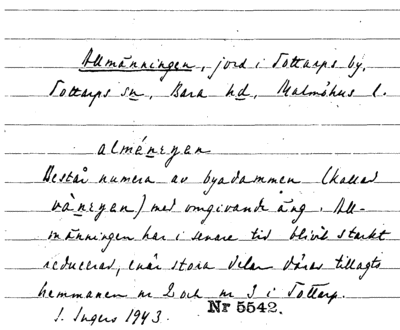 Allmänningen, jord i Tottarps by,
Tottarps sn, Bara hd, Malmöhus l.
almáneŋan
Består numera av byadammen (kallad
váneŋan) med omgivande äng. All-
männingen har i senare tid blivit starkt
reducerad, enär stora delar därav tillagts
hemmanen nr 2 och nr 3 i Tottarp.
I. Ingers 1943. Nr 5542.